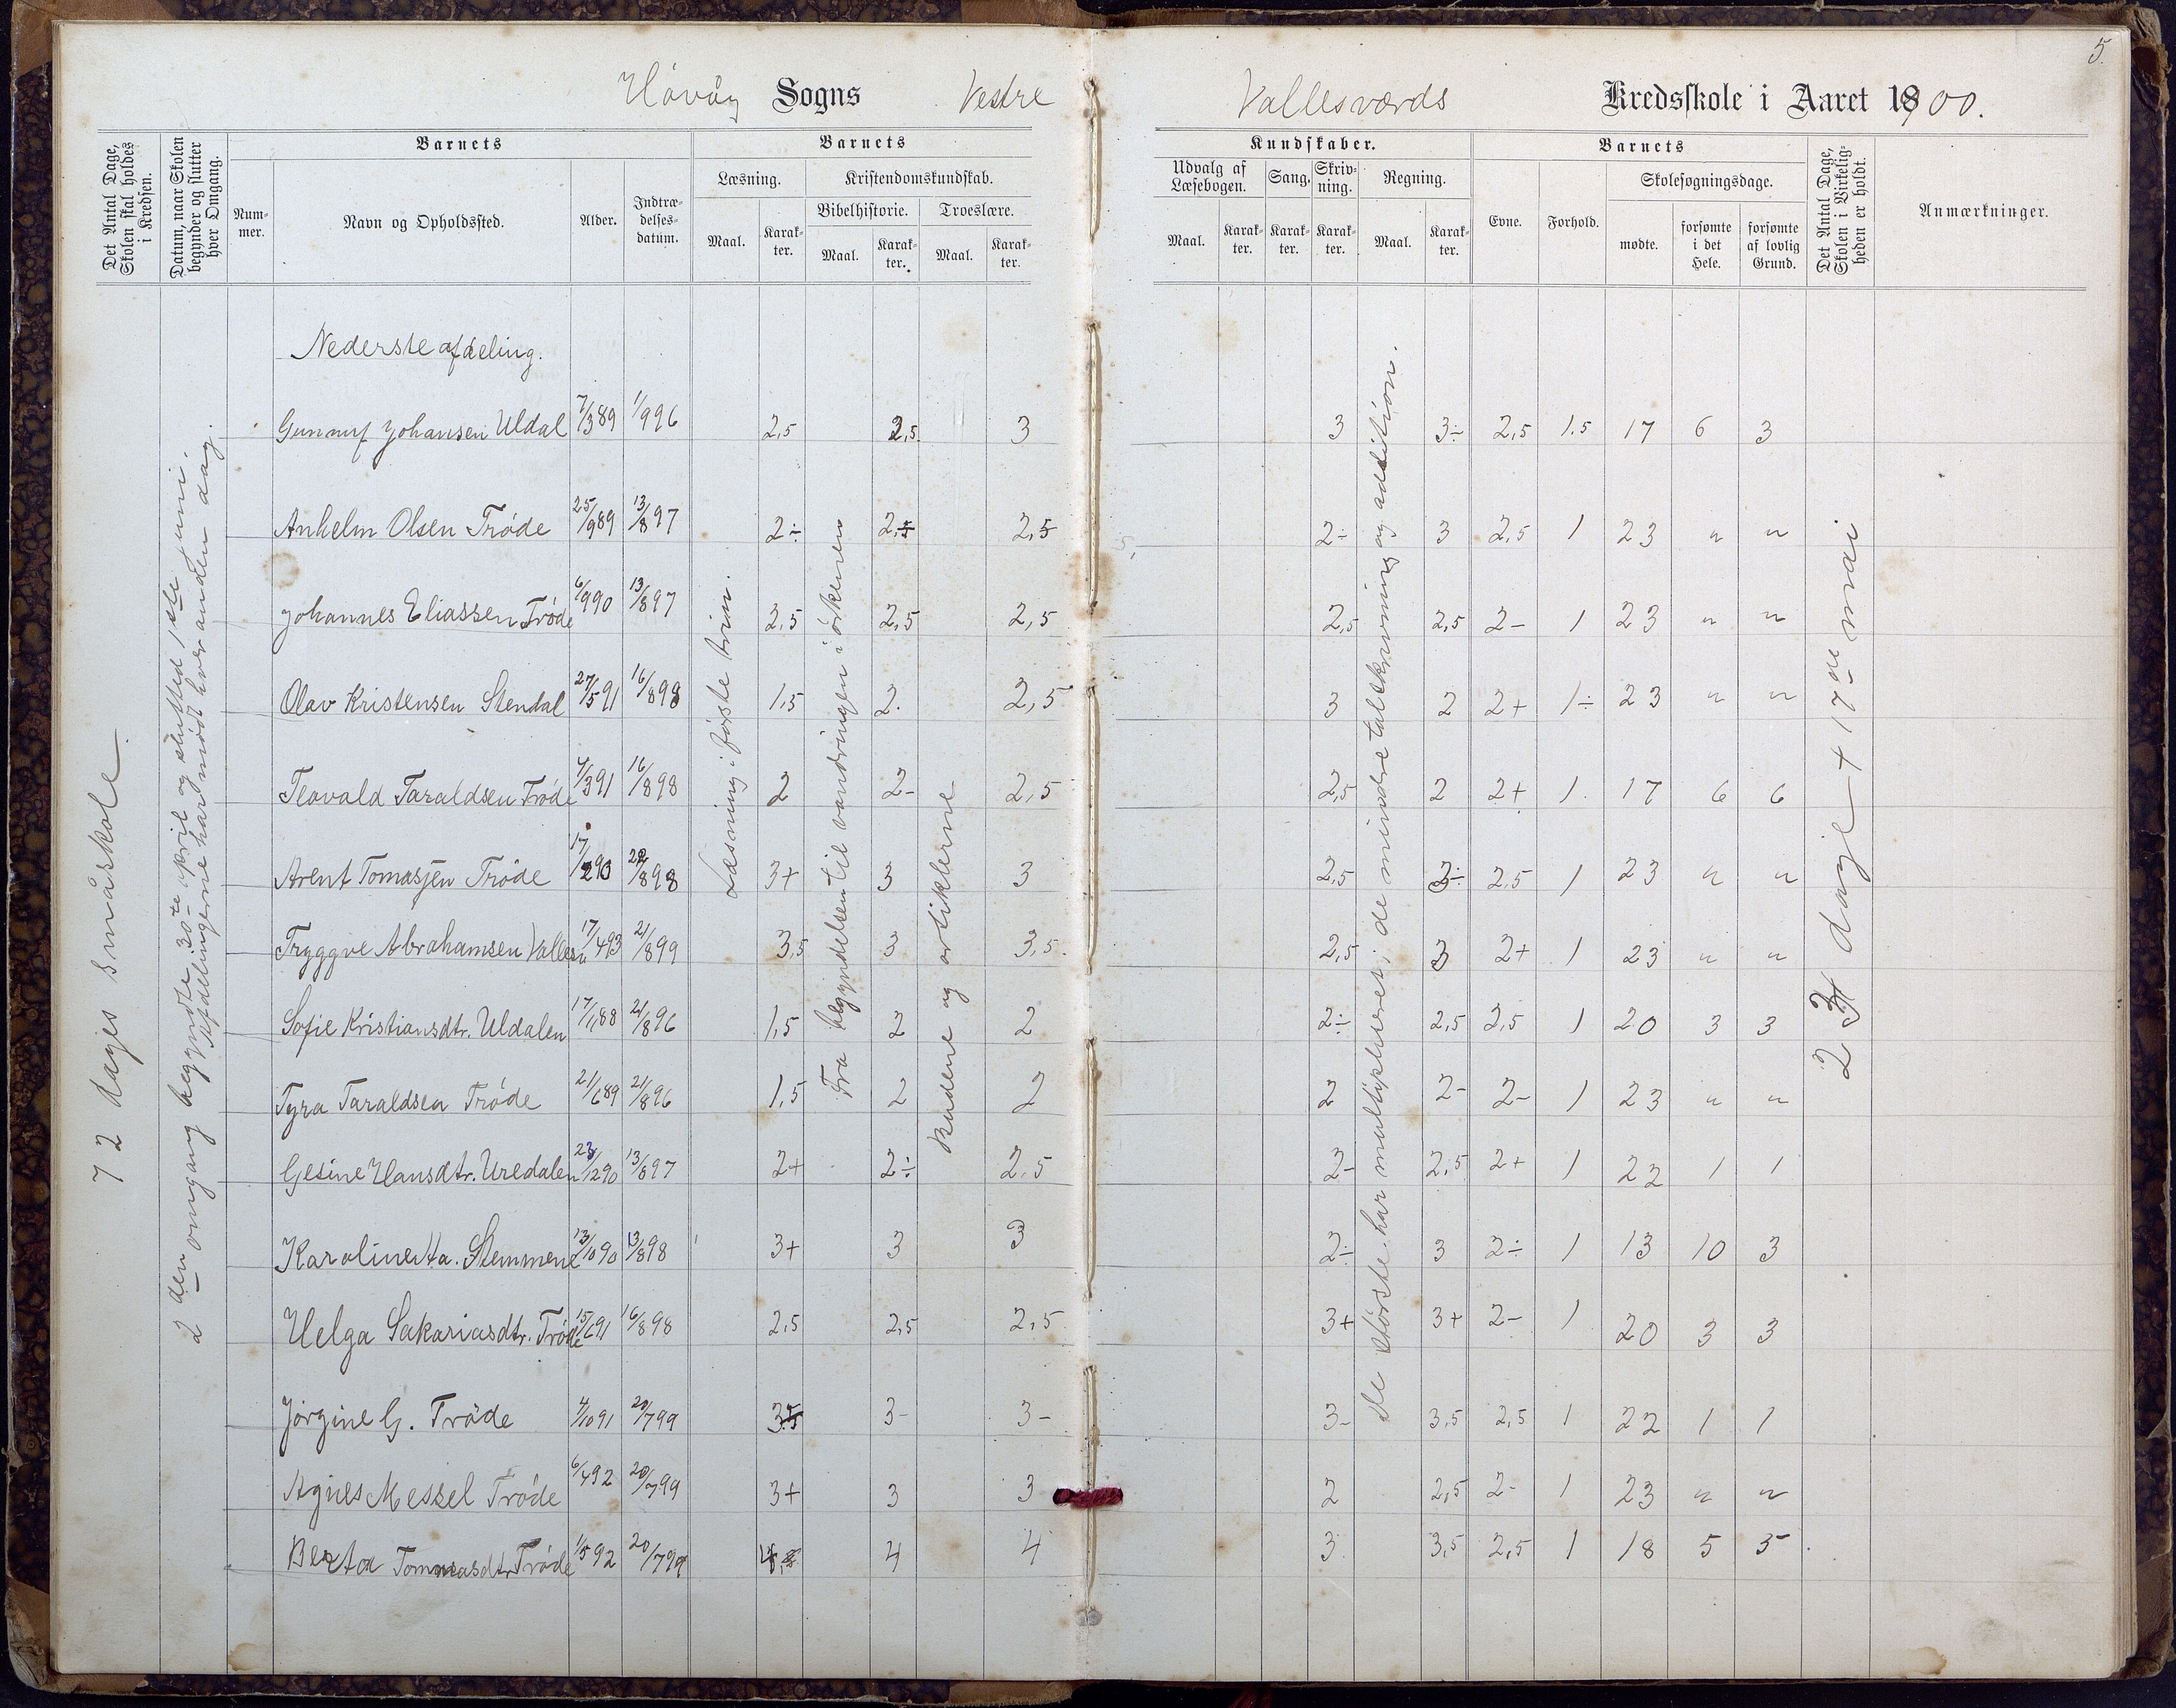 5.
Høvåg Sogns Vestre Vallesværds Kredsskole i Aaret 1900.
Det Antal Dage, Skolen skal holdes i Kredsen.
Datum, naar Skolen begynder og slutter hver Omgang.
Barnets
Nummer.
Navn og Opholdssted.
Alder.
Indtrædelsesdatum.
Barnets
Læsning.
Maal.
Karakter.
Kristendomskundskab.
Bibelhistorie.
Maal.
Karakter.
Troeslære.
Maal.
Karakter.
Kundskaber.
Udvalg af Læsebogen.
Maal.
Karakter.
Sang.
Karakter.
Skrivning.
Karakter.
Regning.
Maal.
Karakter.
Barnets
Evne.
Forhold.
Skolesøgningsdage.
mødte.
forsømte i det Hele.
forsømte af lovlig Grund.
Det Antal Dage, Skolen i Virkeligheden er holdt.
Anmærkninger.
72 dages småskole
2 den omgang begyndte 30te april og slutted 1ste juni.
Afdelingerne har mødt hver anden dag.
Læsning i første trin.
Fra begyndelsen til vandringen i ørkenen
Budene og artiklerne
De største har multipliseret; de mindre talskrivning og addition.
23 dage + 17de mai
Nederste afdeling.
Gunnuf Johansen Uldal 7/3 89 1/9 96 2,5 2,5 3 3 3÷ 2,5 1.5 17 6 3
Anhelm Olsen Trøde 25/9 89 13/8 97 2÷ 2,5 2,5 2÷ 3 2,5 1 23 " "
Johannes Eliassen Trøde 6/9 90 13/8 97 2,5 2,5 2,5 2,5 2,5 2- 1 23 " "
Olav Kristensen Stendal 27/5 91 16/8 98 1,5 2. 2,5 3 2 2+ 1÷ 23 " "
Teovald Taraldsen Trøde 4/3 91 16/8 98 2 2- 2,5 2,5 2 2+ 1. 17 6 6
Arent Tomasjen Trøde 17/2 90 22/8 98 3+ 3 3 2,5 3÷ 2,5 1 23 " "
Tryggve Abrahamsen Vallesv. 17/4 93 21/8 99 3,5 3 3,5. 2,5 3 2+ 1 23 " "
Sofie Kristiansdtr. Uldalen 17/1 88 21/8 96 1,5 2 2 2÷ 2,5 2,5 1 20 3 3
Tyra Taraldsen Trøde 21/6 89 21/8 96 1,5 2 2 2 2- 2- 1 23 " "
Gesine Hansdtr. Uredalen 23/12 90 13/8 97 2+ 2÷ 2,5 2- 2,5 2+ 1 22 1 1
Karoline Ha. Stemmene 13/10 90 13/8 98 3+ 3 3 2÷ 3 2÷ 1 13 10 3
Helga Sakariasdtr. Trøde 15/6 91 16/8 98 2,5 2,5 2,5 3+ 3+ 2- 1 20 3 3
Jørgine G. Trøde 4/10 91 20/7 99 3,5 3- 3- 3- 3,5 2,5 1 22 1 1
Agnes Messel Trøde 6/4 92 20/7 99 3+ 3 3 2 2,5 2- 1 23 " "
Berta Tommasdtr Trøde 1/5 92 20/7 99 4 4 3 3,5 2,5 1 18 5 5